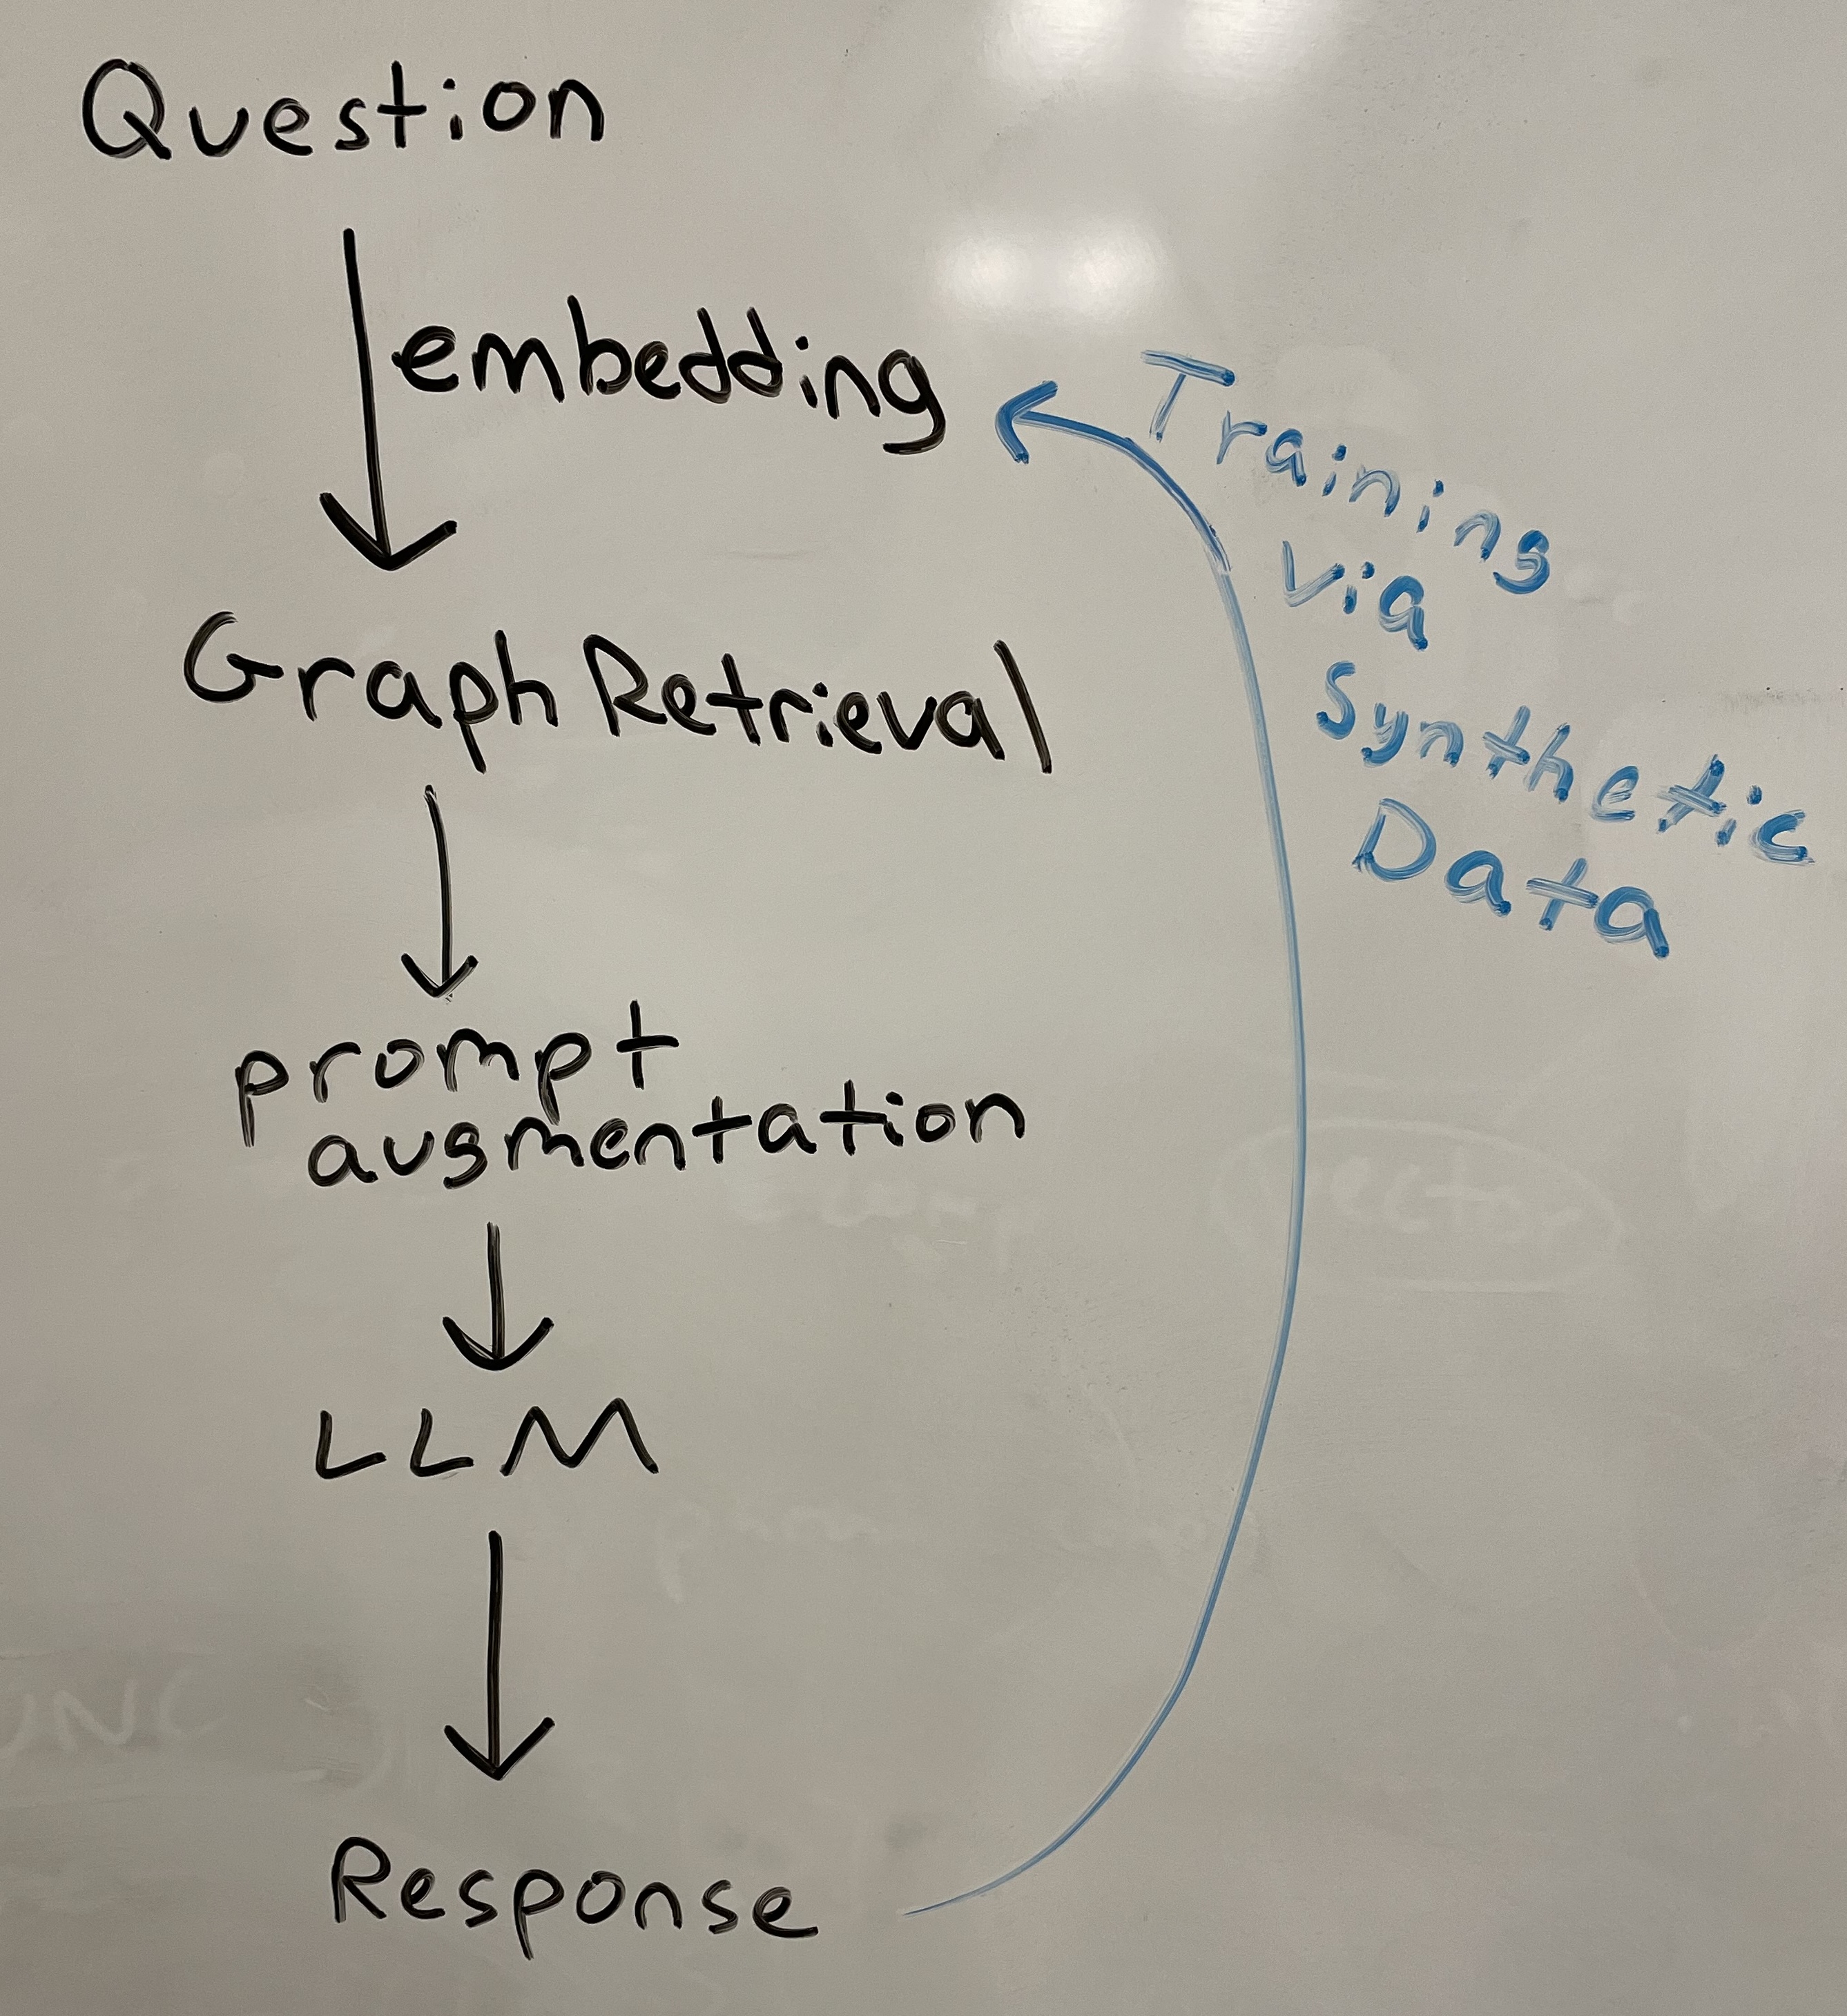 Question
embedding
Graph Retrieval
prompt
augmentation
LLM
Response
Training
via
Synthetic
Data